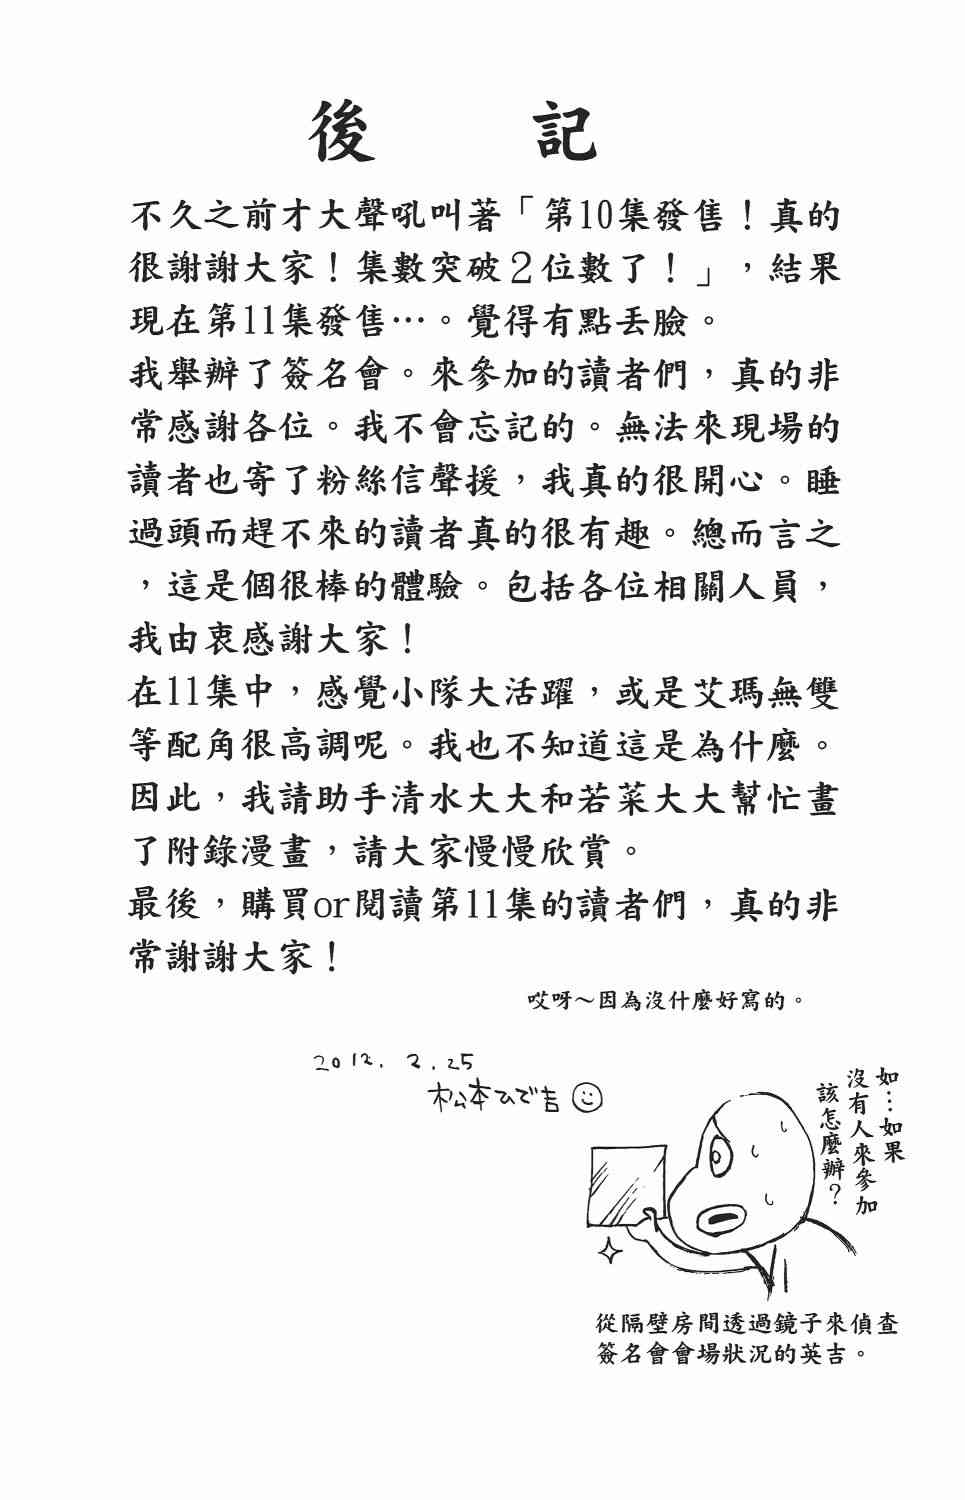 後 記
不久之前才大聲吼叫著「第10集發售！真的
很謝謝大家！集數突破２位數了！」，結果
現在第11集發售…。覺得有點丟臉。
我舉辦了簽名會。來參加的讀者們，真的非
常感謝各位。我不會忘記的。無法來現場的
讀者也寄了粉絲信聲援，我真的很開心。睡
過頭而趕不來的讀者真的很有趣。總而言之
，這是個很棒的體驗。包括各位相關人員，
我由衷感謝大家！
在11集中，感覺小隊大活躍，或是艾瑪無雙
等配角很高調呢。我也不知道這是為什麼。
因此，我請助手清水大大和若菜大大幫忙畫
了附錄漫畫，請大家慢慢欣賞。
最後，購買or閱讀第11集的讀者們，真的非
常謝謝大家！
哎呀～因為沒什麼好寫的。
2012. 2. 25
松本ひで吉
如…如果
沒有人來參加
該怎麼辦？
從隔壁房間透過鏡子來偵查
簽名會會場狀況的英吉。